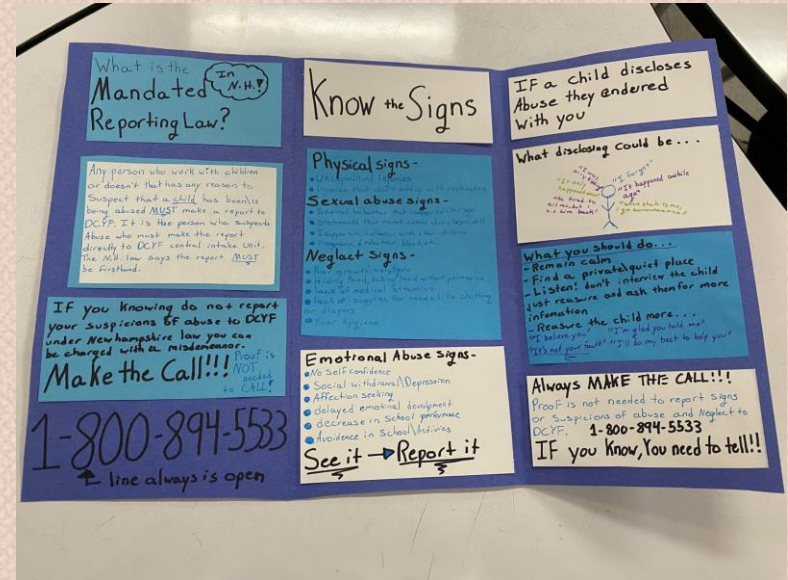 What is the
Mandated
Reporting Law?
In
N.H.!
Any person who work with children
or doesn't that has any reason to
Suspect that a child has been\is
being abused MUST make a report to
DCYF. It is the person who suspects
Abuse who must make the report
directly to DCYF central intake Unit.
The N.H. law says the report MUST
be firsthand.
If you Knowing do not report
your suspicions of abuse to DCYF
under New hampshire law you can
be charged with a misdemeanor.
Make the Call!!!
Proof is
NOT
needed
to CALL!
1-800-894-5533
line always is open
Know the Signs
Physical signs-
Unexplained injuries
Sexual abuse signs-
Neglact Signs-
Hiding food, taking food without permission
lack of medical
lack of supplies for needs like clothing
or diapers
Poor hygiene
Emotional Abuse signs-
No self confidence
Social withdrawl\Depression
Affection seeking
delayed emotinal devalopment
decrease in School performace
Avoidence in School\Activies
See it → Report it
IF a child discloses
Abuse they endured
with you
What disclosing could be...
"I forgot"
"It happened awhile
ago"
"It only
happened once"
What you should do...
- Remain calm
- Find a private\quiet place
- Listen! don't interview the child
just reasure and ask them for more
infomation
- Reasure the child more...
"I believe you" "I'm glad you told me"
"It's not your fault" "I'll do my best to help you"
Always MAKE THE CALL!!!
Proof is not needed to report signs
or Suspicions of abuse and Neglect to
DCYF. 1-800-894-5533
IF you Know, You need to tell!!